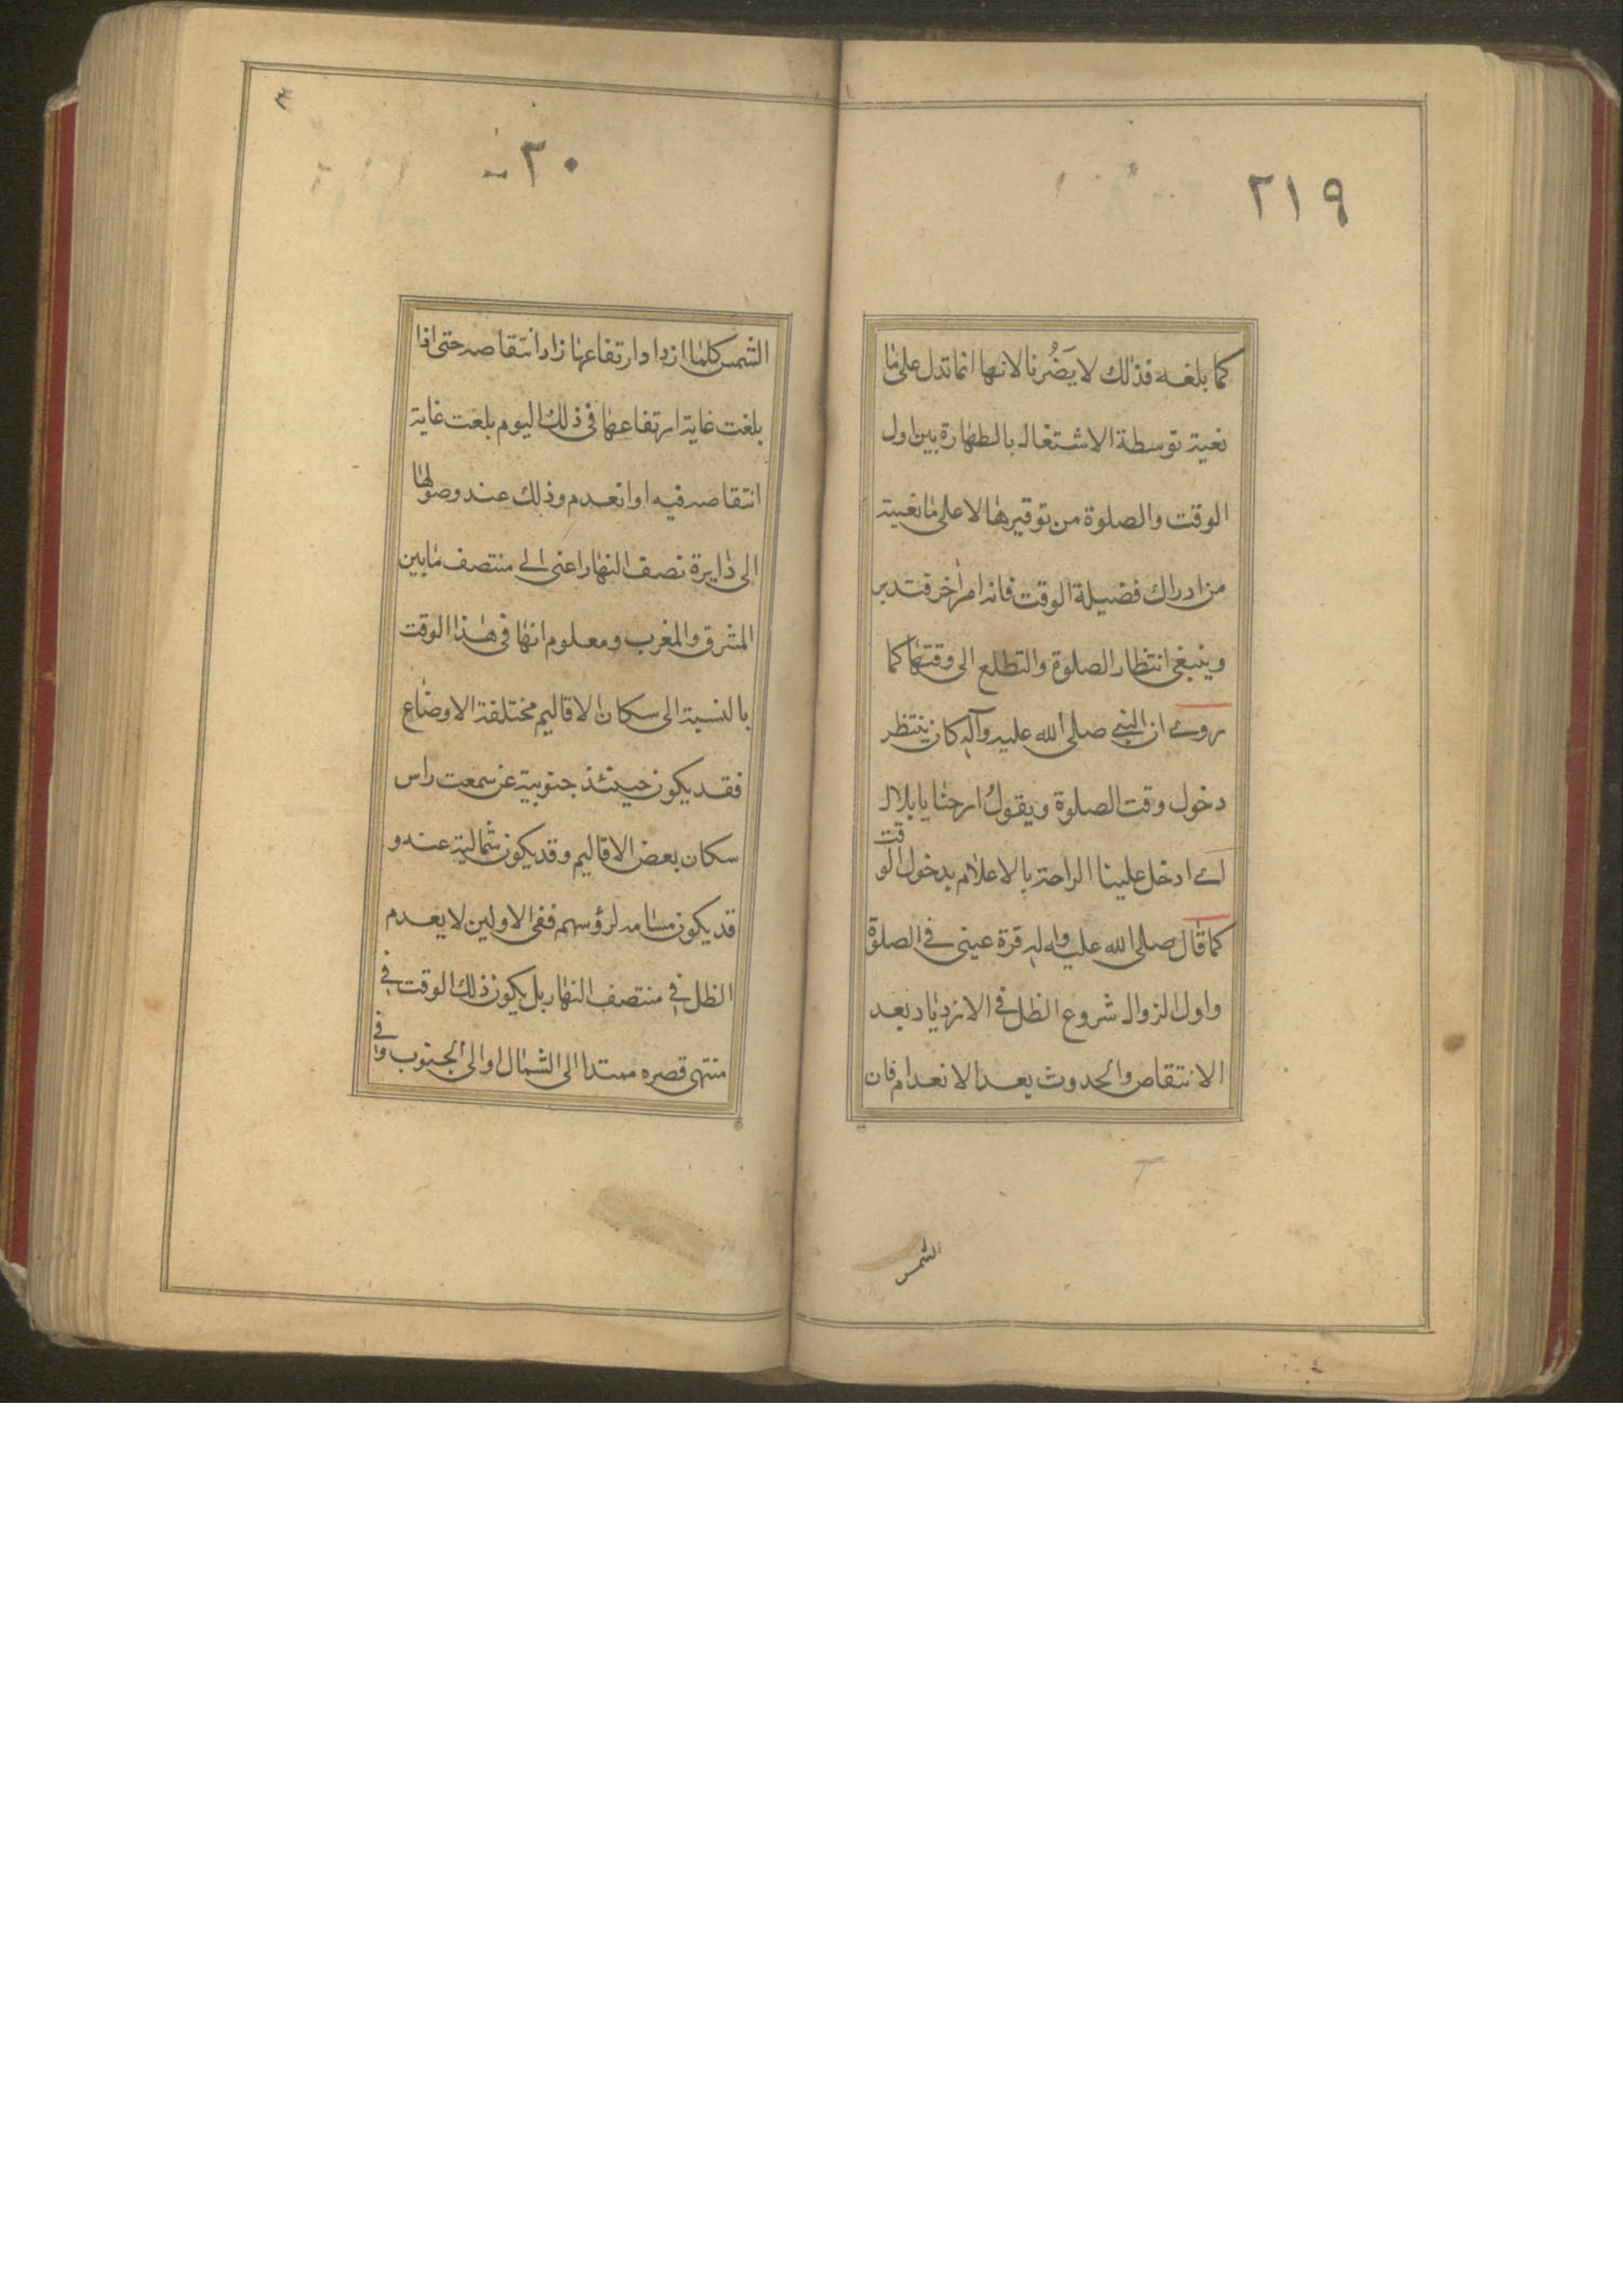 ٢١٩
كما بلغه فذلك لا يَضُرنا لانها انما تدل على ما
نعيته توسطة الاشتغال بالطهارة بين اول
الوقت والصلوة من توقيرها لا على ما نعيته
من ادراك فضيلة الوقت فانه امر اخر فتدبر
وينبغى انتظار الصلوة والتطلع الى وقتها كما
روى ان النبي صلى الله عليه وآله كان ينتظر
دخول وقت الصلوة ويقول ارحنا يا بلال
اى ادخل علينا الراحة بالاعلام بدخول الوقت
كما قال صلى الله عليه واله قرة عينى فى الصلوة
واول الزوال شروع الظل فى الازدياد بعد
الانتقاص والحدوث بعد الانعدام فان
الشمس
الشمس كلما ازداد ارتفاعها زاد انتقاصه حتى اذا
بلغت غاية ارتفاعها فى ذلك اليوم بلغت غاية
انتقاصه فيه او انعدم وذلك عند وصولها
الى دايرة نصف النهار اعنى الى منتصف ما بين
المشرق والمغرب ومعلوم انها فى هذا الوقت
بالنسبة الى سكان الاقاليم مختلفة الاوضاع
فقد يكون حينئذ جنوبية عن سمعت راس
سكان بعض الاقاليم وقد يكون شمالية عنه و
قد يكون مسامته لرؤسهم ففى الاولين لا يعدم
الظل فى منتصف النهار بل يكون ذلك الوقت فى
منتهى قصره ممتدا الى الشمال او الى الجنوب وفى